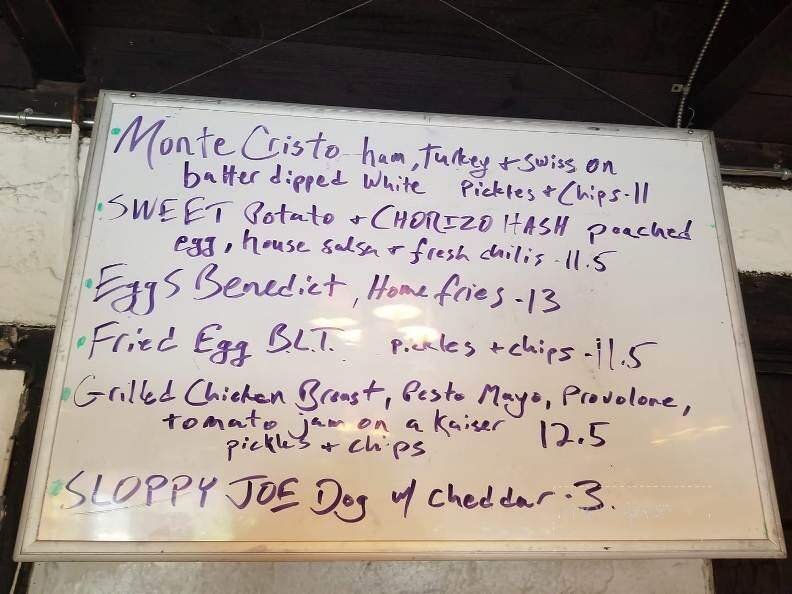 Monte Cristo ham, turkey + swiss on
batter dipped white pickles + chips - 11
SWEET Potato + CHORIZO HASH poached
egg, house salsa + fresh chilis - 11.5
Eggs Benedict, Home fries - 13
Fried Egg B.L.T. pickles + chips - 11.5
Grilled Chicken Breast, Pesto Mayo, Provolone,
tomato jam on a Kaiser 12.5
pickles + chips
SLOPPY JOE Dog w/ cheddar - 3.